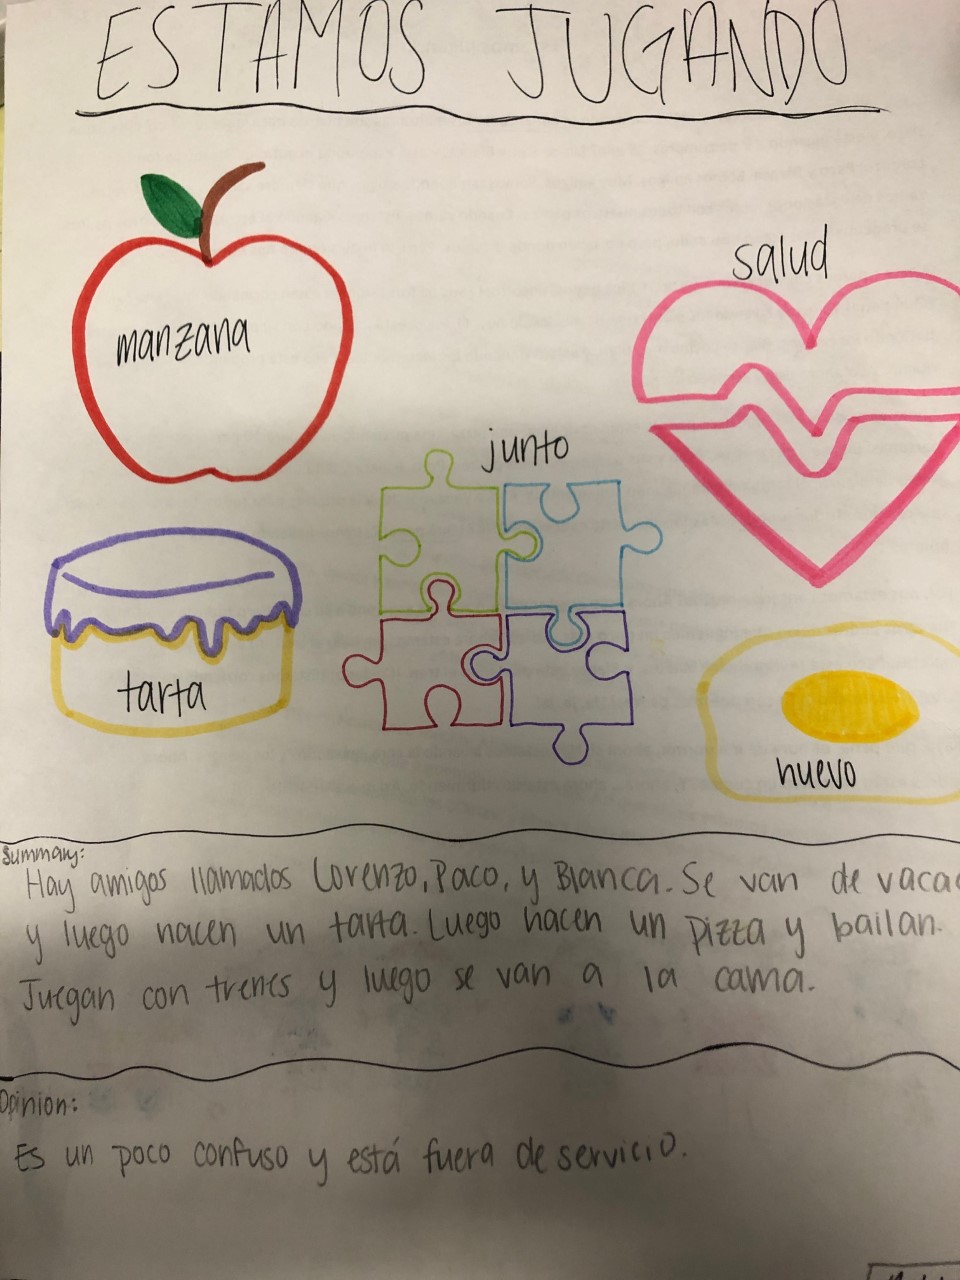 ESTAMOS JUGANDO
salud
manzana
junto
tarta
huevo
Summary:
Hay amigos llamados Lorenzo, Paco, y Blanca. Se van de vaca
y luego hacen un tarta. Luego hacen un pizza y bailan.
Juegan con trenes y luego se van a la cama.
Opinion:
Es un poco confuso y está fuera de servicio.